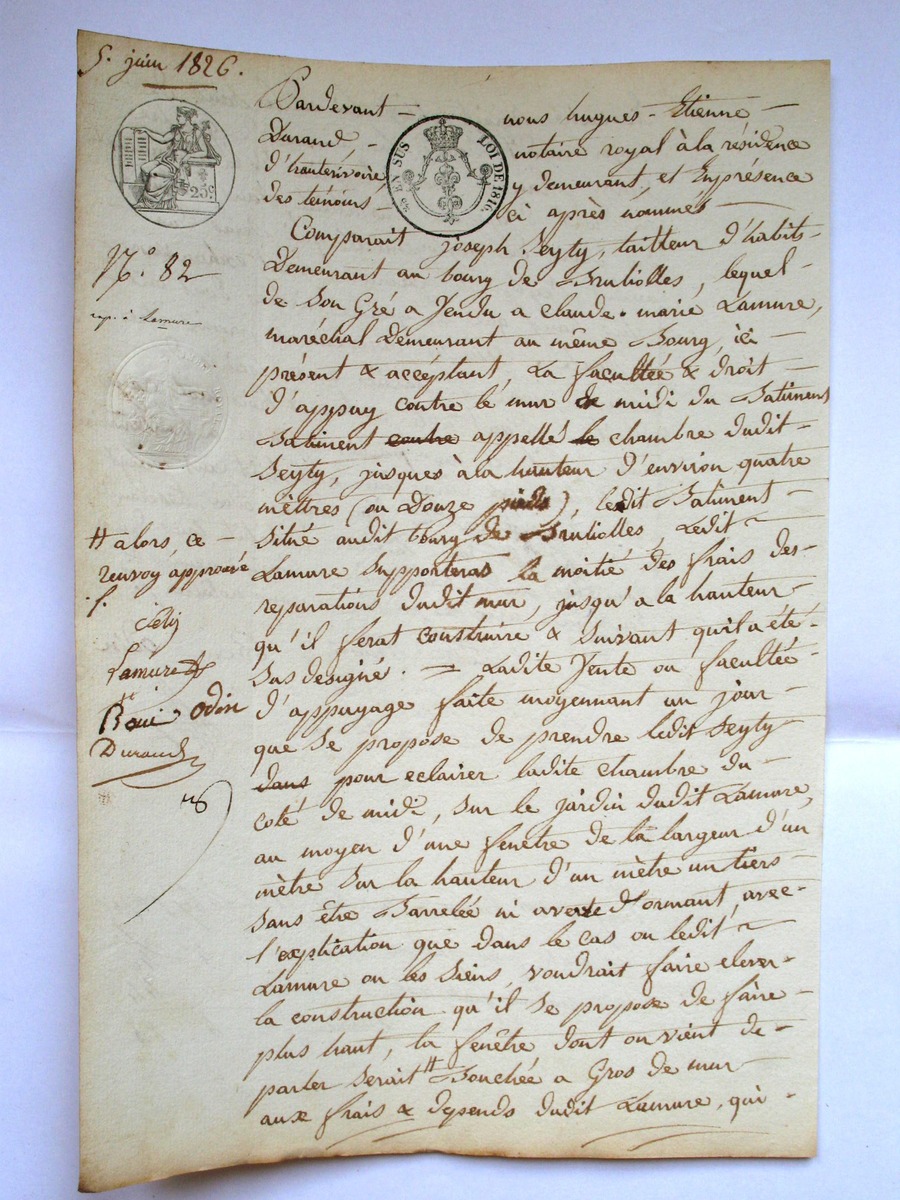 5. juin 1826.
25c.
EN SUS LOI DE 1816.
N.o 82
exp. à Lamure
Pardevant nous hugues-Etienne
Durand, notaire royal à la résidence
d'hauterivoire y demeurant, et Enprésence
des témoins ci après nommés
Comparait joseph Seyty, tailleur d'habits
Demeurant au bourg de Bruliolles, lequel
de Son Gré a Vendu a claude-marie Lamure,
maréchal Demeurant au même Bourg, ici
présent & accéptant, La facultée & droit
d'appuy contre le mur de midi du Batiment
Batiment contre appellé le chambre dudit
Seyty, jusques à la hauteur d'environ quatre
mèttres (ou Douze pieds), ledit Batiment
Situé audit bourg de Brulliolles, Ledit
Lamure Supporteras la moitié des frais des
reparations dudit mur, jusqu'a la hauteur
qu'il ferat construire & Suivant quil a été
Sus designé. = Ladite Vente ou facultée
d'appuyage faite moyennant un jour
que Se propose de prendre ledit Seyty
dans pour eclairer ladite chambre du
coté de midi, sur le jardin dudit Lamure,
au moyen d'une fenêtre de la largeur d'un
mètre Sur la hauteur d'un mètre un tiers
Sans être Barrelée ni averte d'ormant, avec
l'explication que dans le cas ou ledit
Lamure ou les Siens, voudrait faire elever
la construction qu'il Se propose de faire
plus haut, la fenêtre dont on vient de
parler Serait # Bouchée a Gros de mur
aux frais & depends dudit Lamure, qui
# alors, ce
renvoy approuvé
Lamure
Odin
Durand